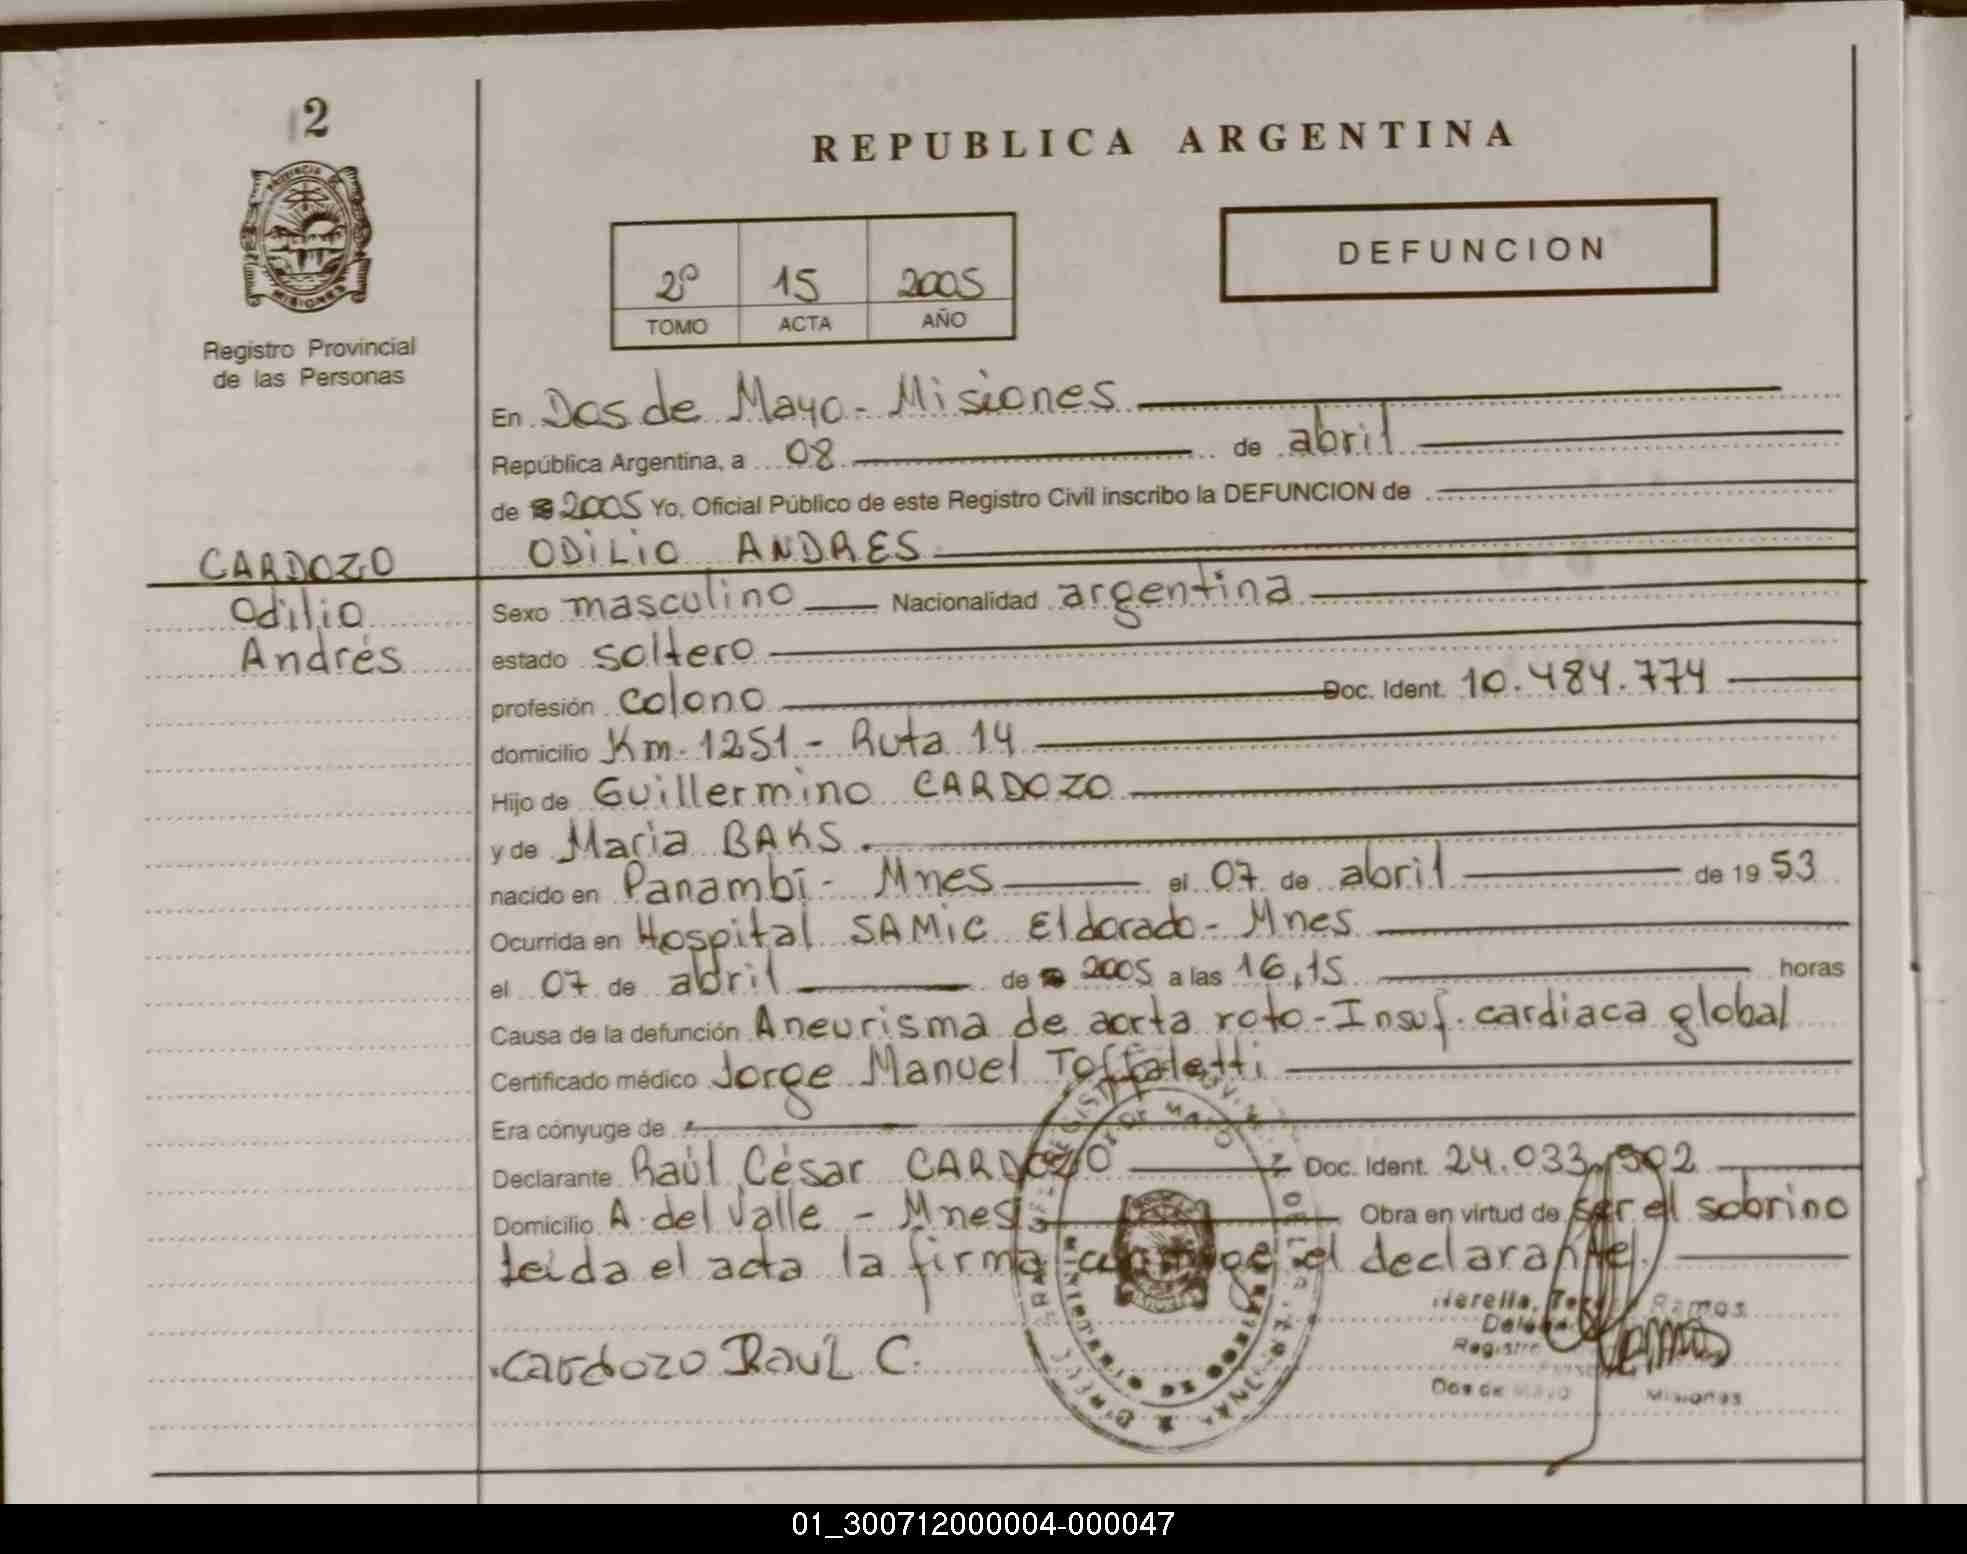 2
REPUBLICA ARGENTINA
PROVINCIA DE
MISIONES
Registro Provincial
de las Personas
2º 15 2005
TOMO ACTA AÑO
DEFUNCION
En Dos de Mayo - Misiones
República Argentina, a 08 de abril
de 2005 Yo, Oficial Público de este Registro Civil inscribo la DEFUNCION de
CARDOZO ODILIO ANDRES
Odilio
Andrés
Sexo masculino Nacionalidad argentina
estado soltero
profesión colono Doc. Ident. 10.484.774
domicilio Km. 1251 - Ruta 14
Hijo de Guillermino CARDOZO
y de Maria BAKS
nacido en Panambí - Mnes el 07 de abril de 1953
Ocurrida en Hospital SAMiC Eldorado - Mnes
el 07 de abril de 2005 a las 16,15 horas
Causa de la defunción Aneurisma de aorta roto - Insuf. cardiaca global
Certificado médico Jorge Manuel Toffaletti
Era cónyuge de
Declarante Raúl César CARDOZO Doc. Ident. 24.033.902
Domicilio A. del Valle - Mnes Obra en virtud de ser el sobrino
Leida el acta la firma conmigo el declarante.
Ramos
Registro
Dos de Mayo Misiones
Cardozo Raúl C.
01_300712000004-000047